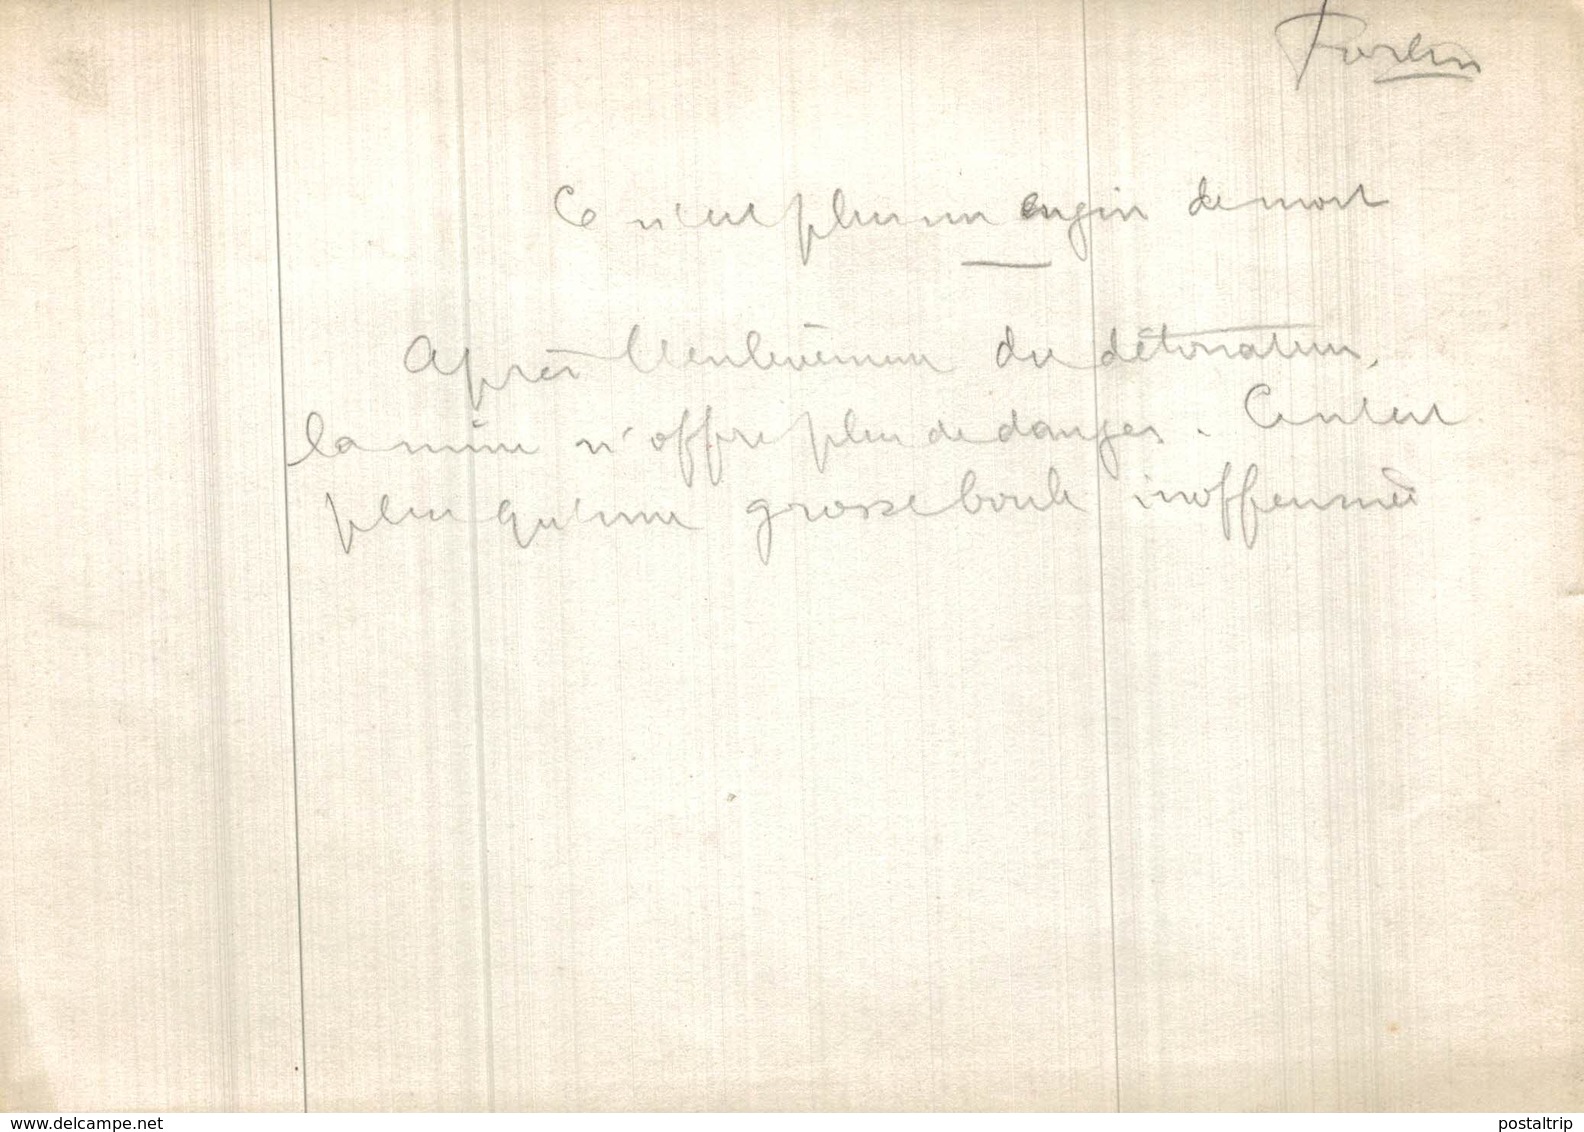 Ce n'est plus un engin de mort
Après l'enlèvement du détonateur,
la mine n'offre plus de danger. Ce n'est
plus qu'une grosse boule inoffensive
www.delcampe.net
postaltrip